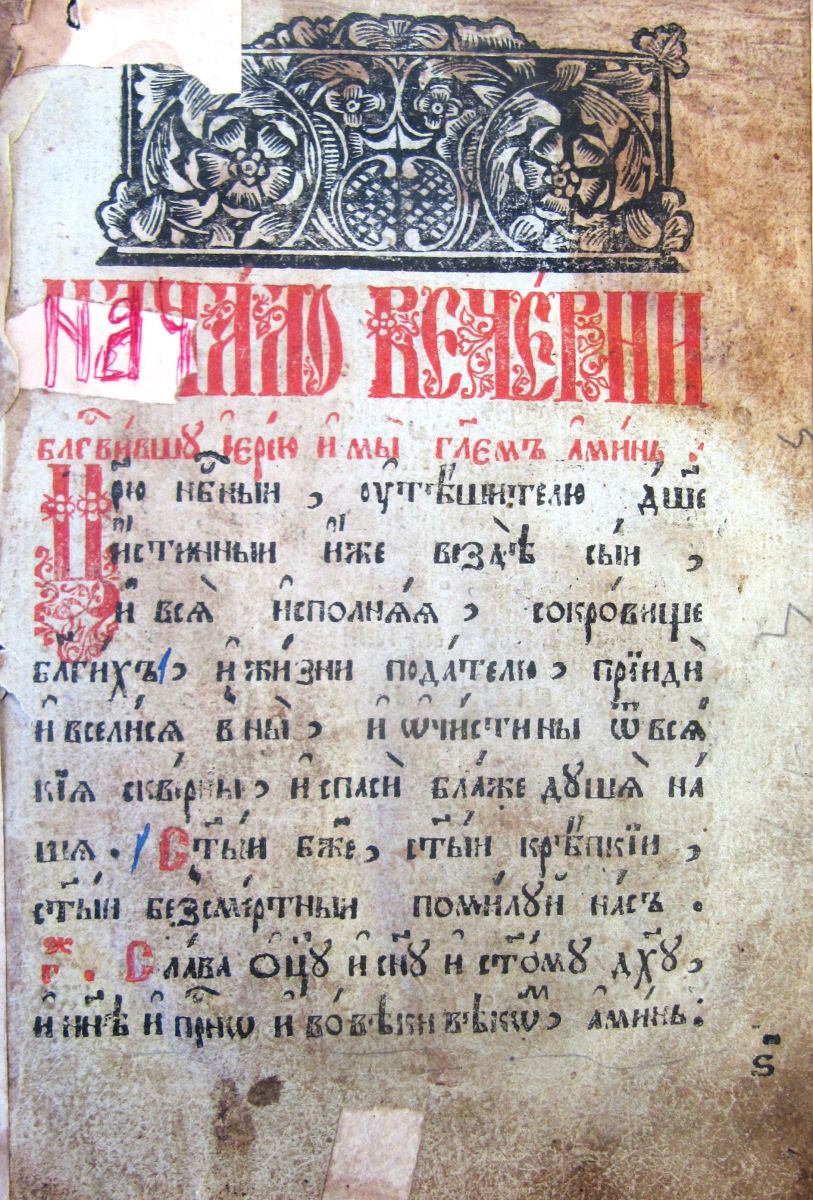 НАЧА́ЛО ВЕЧЕ́РНИ
Бл҃гⷭ҇ви́вшу і҆ере́ю и҆ мы̀ гл҃емъ а҆ми́нь :
Цр҃ю нбⷭ҇ныи , оу҆тѣ́шителю дш҃е
и҆́стинныи и҆́же вездѣ̀ сы́и ,
и҆ всѧ̀ и҆сполнѧ́ѧ , сокро́вище
бл҃ги́хъ , и҆ жи́зни пода́телю , прїидѝ
и҆ всели́сѧ в ны̀ , и҆ ѡ҆чи́сти ны ѿ всѧ́
кїѧ скве́рны , и҆ спасѝ бла́же душѧ̀ на́
шѧ . Ст҃ы́и бж҃е , ст҃ы́и крѣ́пкїи ,
ст҃ы́и безсме́ртныи поми́луй на́съ .
г҃ж . Сла́ва о҆ц҃у и҆ сн҃у и҆ ст҃о́му дх҃у ,
и҆ нн҃ѣ и҆ при́сно и҆ во́ вѣки вѣкѡ́м , а҆ми́нь :
ѕ҃